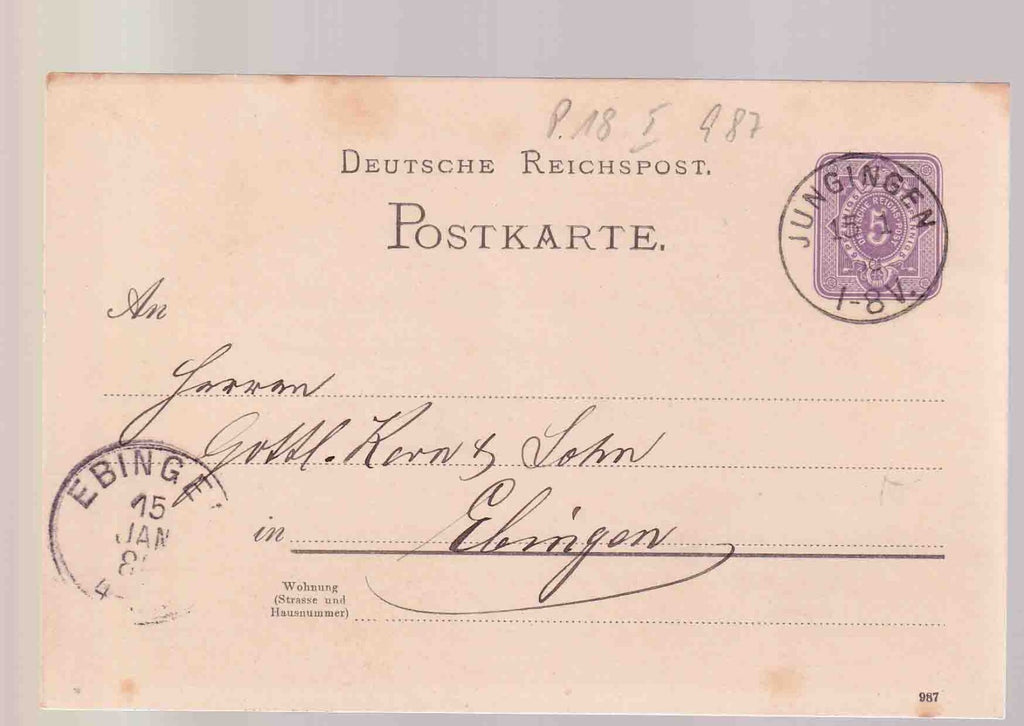 P. 18 I 987
DEUTSCHE REICHSPOST.
POSTKARTE.
JUNGINGEN
1-8 V.
5
An
Herren
Gottl. Kern & Sohn
in Ebingen
EBINGE
15
JAN
4
Wohnung
(Strasse und
Hausnummer)
987